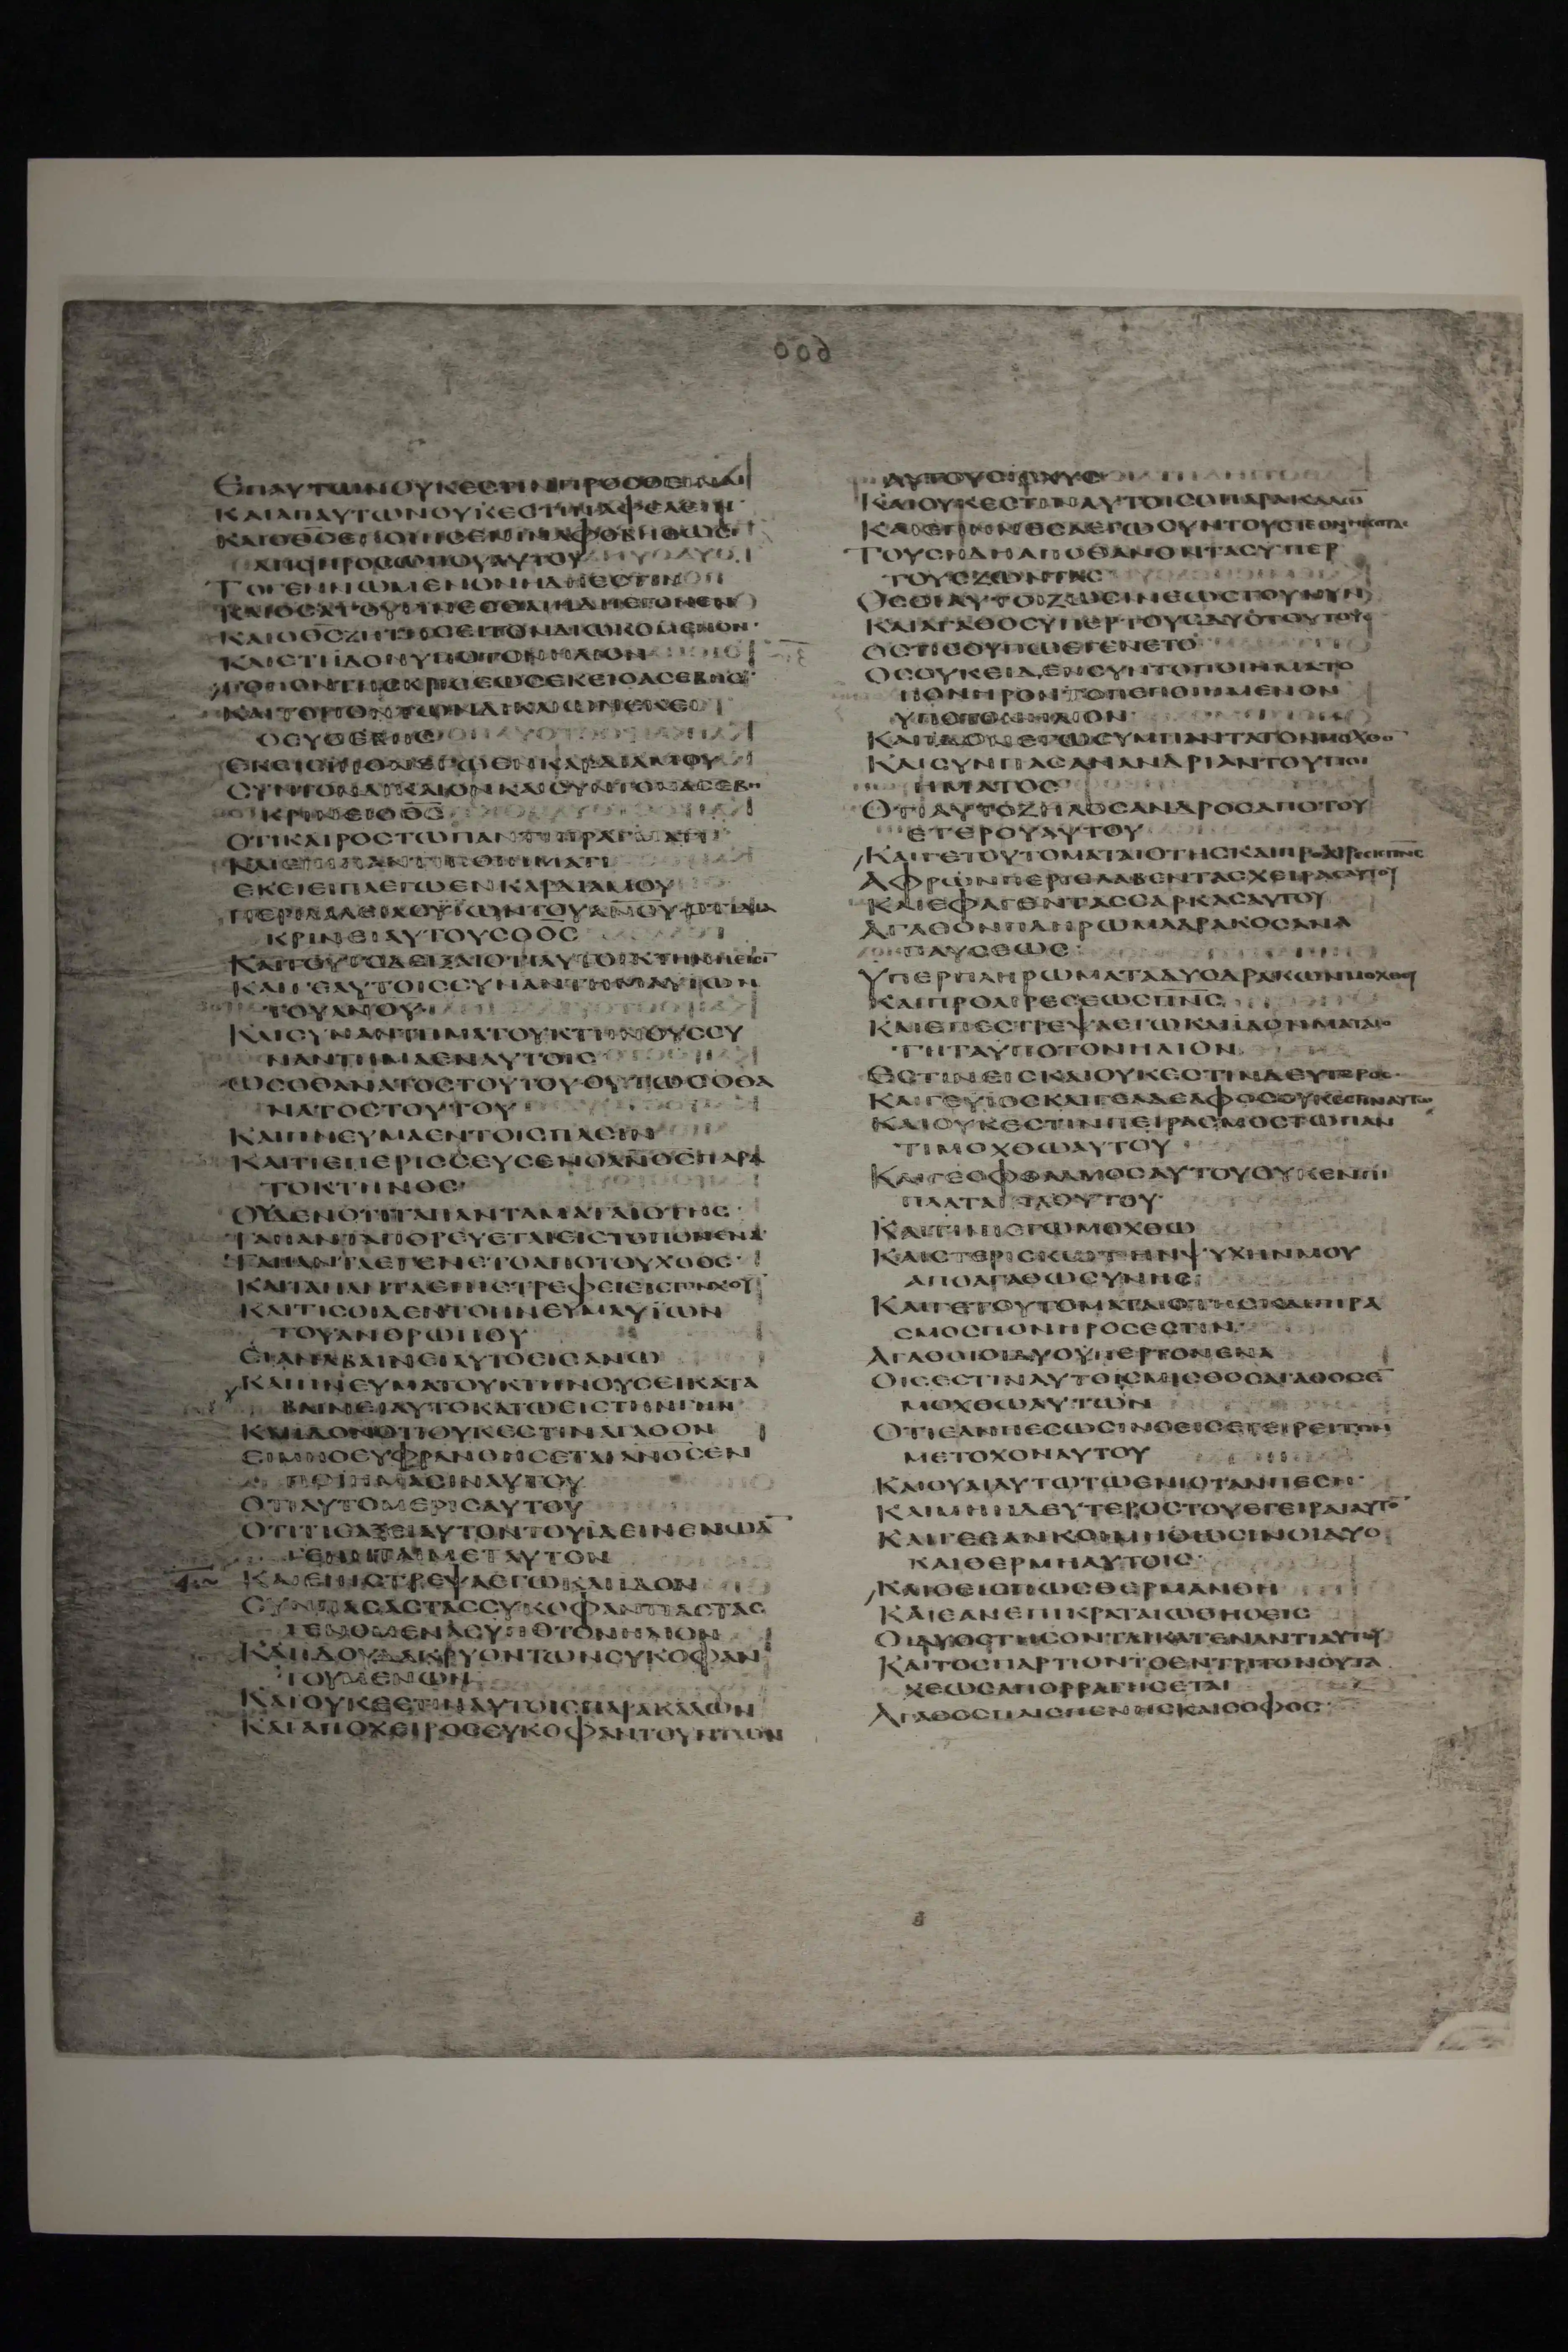 ΕΠΑΥΤΩΝΟΥΚΕCΤΙΝΠΡΟCΘΕΙΝΑΙ
ΚΑΙΑΠΑΥΤΩΝΟΥΚΕCΤΙΝΑΦΕΛΕΙΝ
ΚΑΙΟΘC
ΑΠΟΠΡΟCΩΠΟΥΑΥΤΟΥ
ΤΟΓΕΝΝΩΜΕΝΟΝΗΔΗΕCΤΙΝ
ΚΑΙΟΘCΖΗΤΗCΕΙΤΟΝΔΙΩΚΟΜΕΝΟΝ
ΚΑΙΕΤΙΙΔΟΝΥΠΟΤΟΝΗΛΙΟΝ
ΕΚΕΙΟΑCΕΒΗC
ΟΕΥCΕΒΗC
CΥΝΤΟΝΔΙΚΑΙΟΝΚΑΙCΥΝΤΟΝΑCΕΒΗ
ΚΡΙΝΕΙΟΘC
ΟΤΙΚΑΙΡΟCΤΩΠΑΝΤΙΠΡΑΓΜΑΤΙ
ΚΑΙΕΠΙΠΑΝΤΙΠΟΙΗΜΑΤΙ
ΕΚΕΙΕΙΠΑΕΓΩΕΝΚΑΡΔΙΑΜΟΥ
ΚΡΙΝΕΙΑΥΤΟΥCΟΘC
ΚΑΙΓΕΑΥΤΟΙCCΥΝΑΝΤΗΜΑΥΙΩΝ
ΤΟΥΑΝΟΥ
ΚΑΙCΥΝΑΝΤΗΜΑΤΟΥΚΤΗΝΟΥCCΥ
ΝΑΝΤΗΜΑΕΝΑΥΤΟΙC
ΩCΟΘΑΝΑΤΟCΤΟΥΤΟΥΟΥΤΩCΟΘΑ
ΝΑΤΟCΤΟΥΤΟΥ
ΚΑΙΠΝΕΥΜΑΕΝΤΟΙCΠΑCΙΝ
ΚΑΙΤΙΕΠΕΡΙCCΕΥCΕΝΟΑΝΟCΠΑΡΑ
ΤΟΚΤΗΝΟC
ΟΥΔΕΝΟΤΙΤΑΠΑΝΤΑΜΑΤΑΙΟΤΗC
ΤΑΠΑΝΤΑΠΟΡΕΥΕΤΑΙΕΙCΤΟΠΟΝΕΝΑ
ΤΑΠΑΝΤΑΕΓΕΝΕΤΟΑΠΟΤΟΥΧΟΟC
ΚΑΙΤΑΠΑΝΤΑΕΠΙCΤΡΕΦΕΙΕΙCΤΟΝΧΟΥ
ΚΑΙΤΙCΟΙΔΕΝΤΟΠΝΕΥΜΑΥΙΩΝ
ΤΟΥΑΝΘΡΩΠΟΥ
ΕΙΑΝΑΒΑΙΝΕΙΑΥΤΟΕΙCΑΝΩ
ΚΑΙΠΝΕΥΜΑΤΟΥΚΤΗΝΟΥCΕΙΚΑΤΑ
ΒΑΙΝΕΙΑΥΤΟΚΑΤΩΕΙCΤΗΝΓΗΝ
ΚΑΙΙΔΟΝΟΤΙΟΥΚΕCΤΙΝΑΓΑΘΟΝ
ΕΙΜΗΟΕΥΦΡΑΝΘΗCΕΤΑΙΑΝΟCΕΝ
ΠΟΙΗΜΑCΙΝΑΥΤΟΥ
ΟΤΙΑΥΤΟΜΕΡΙCΑΥΤΟΥ
ΟΤΙΤΙCΑΞΕΙΑΥΤΟΝΤΟΥΙΔΕΙΝΕΝΩΑ
ΓΕΝΗΤΑΙΜΕΤΑΥΤΟΝ
ΚΑΙΕΠΕCΤΡΕΨΑΕΓΩΚΑΙΙΔΟΝ
CΥΝΠΑCΑCΤΑCCΥΚΟΦΑΝΤΙΑCΤΑC
ΓΕΝΟΜΕΝΑCΥΠΟΤΟΝΗΛΙΟΝ
ΚΑΙΙΔΟΥΔΑΚΡΥΟΝΤΩΝCΥΚΟΦΑΝ
ΤΟΥΜΕΝΩΝ
ΚΑΙΟΥΚΕCΤΙΝΑΥΤΟΙCΠΑΡΑΚΑΛΩΝ
ΚΑΙΑΠΟΧΕΙΡΟCCΥΚΟΦΑΝΤΟΥΝΤΩΝ
ΑΥΤΟΥCΙCΧΥC
ΚΑΙΟΥΚΕCΤΙΝΑΥΤΟΙCΟΠΑΡΑΚΑΛΩ
ΤΟΥCΗΔΗΑΠΟΘΑΝΟΝΤΑCΥΠΕΡ
ΤΟΥCΖΩΝΤΑC
ΟCΟΙΑΥΤΟΙΖΩCΙΝΕΩCΤΟΥΝΥΝ
ΚΑΙΑΓΑΘΟCΥΠΕΡΤΟΥCΔΥΟΤΟΥΤΟΥC
ΟCΤΙCΟΥΠΩΕΓΕΝΕΤΟ
ΟCΟΥΚΕΙΔΕΝCΥΝΤΟΠΟΙΗΜΑΤΟ
ΠΟΝΗΡΟΝΤΟΠΕΠΟΙΗΜΕΝΟΝ
ΥΠΟΤΟΝΗΛΙΟΝ
ΚΑΙΙΔΟΝΕΓΩCΥΜΠΑΝΤΑΤΟΝΜΟΧΘΟ
ΚΑΙCΥΝΠΑCΑΝΑΝΔΡΙΑΝΤΟΥΠΟΙ
ΗΜΑΤΟC
ΟΤΙΑΥΤΟΖΗΛΟCΑΝΔΡΟCΑΠΟΤΟΥ
ΕΤΕΡΟΥΑΥΤΟΥ
ΚΑΙΓΕΤΟΥΤΟΜΑΤΑΙΟΤΗCΚΑΙΠΡΟΑΙΡΕCΙCΠΝC
ΑΦΡΩΝΠΕΡΙΕΛΑΒΕΝΤΑCΧΕΙΡΑCΑΥΤΟΥ
ΚΑΙΕΦΑΓΕΝΤΑCCΑΡΚΑCΑΥΤΟΥ
ΑΓΑΘΟΝΠΛΗΡΩΜΑΔΡΑΚΟCΑΝΑ
ΠΑΥCΕΩC
ΥΠΕΡΠΛΗΡΩΜΑΤΑΔΥΟΔΡΑΚΩΝΜΟΧΘΟΥ
ΚΑΙΠΡΟΑΙΡΕCΕΩCΠΝC
ΚΑΙΕΠΕCΤΡΕΨΑΕΓΩΚΑΙΙΔΟΝΜΑΤΑΙΟ
ΤΗΤΑΥΠΟΤΟΝΗΛΙΟΝ
ΕCΤΙΝΕΙCΚΑΙΟΥΚΕCΤΙΝΔΕΥΤΕΡΟC
ΚΑΙΓΕΥΙΟCΚΑΙΓΕΑΔΕΛΦΟCΟΥΚΕCΤΙΝΑΥΤΩ
ΚΑΙΟΥΚΕCΤΙΝΠΕΙΡΑCΜΟCΤΩΠΑΝ
ΤΙΜΟΧΘΩΑΥΤΟΥ
ΚΑΙΓΕΟΦΘΑΛΜΟCΑΥΤΟΥΟΥΚΕΝΠΙ
ΠΛΑΤΑΙΠΛΟΥΤΟΥ
ΚΑΙΤΙΝΙΕΓΩΜΟΧΘΩ
ΚΑΙCΤΕΡΙCΚΩΤΗΝΨΥΧΗΝΜΟΥ
ΑΠΟΑΓΑΘΩCΥΝΗC
ΚΑΙΓΕΤΟΥΤΟΜΑΤΑΙΟΤΗCΚΑΙΠΙΡΑ
CΜΟCΠΟΝΗΡΟCΕCΤΙΝ
ΑΓΑΘΟΙΟΙΔΥΟΥΠΕΡΤΟΝΕΝΑ
ΟΙCΕCΤΙΝΑΥΤΟΙCΜΙCΘΟCΑΓΑΘΟCΕ
ΜΟΧΘΩΑΥΤΩΝ
ΟΤΙΕΑΝΠΕCΩCΙΝΟΕΙCΕΓΕΙΡΕΙΤΟΝ
ΜΕΤΟΧΟΝΑΥΤΟΥ
ΚΑΙΟΥΑΙΑΥΤΩΤΩΕΝΙΟΤΑΝΠΕCΗ
ΚΑΙΜΗΗΔΕΥΤΕΡΟCΤΟΥΕΓΕΙΡΑΙΑΥΤΟ
ΚΑΙΓΕΕΑΝΚΟΙΜΗΘΩCΙΝΟΙΔΥΟ
ΚΑΙΘΕΡΜΗΑΥΤΟΙC
ΚΑΙΟΕΙCΠΩCΘΕΡΜΑΝΘΗ
ΚΑΙΕΑΝΕΠΙΚΡΑΤΑΙΩΘΗΟΕΙC
ΟΙΔΥΟCΤΗCΟΝΤΑΙΚΑΤΕΝΑΝΤΙΑΥΤΟΥ
ΚΑΙΤΟCΠΑΡΤΙΟΝΤΟΕΝΤΡΙΤΟΝΟΥΤΑ
ΧΕΩCΑΠΟΡΡΑΓΗCΕΤΑΙ
ΑΓΑΘΟCΠΑΙCΠΕΝΗCΚΑΙCΟΦΟC